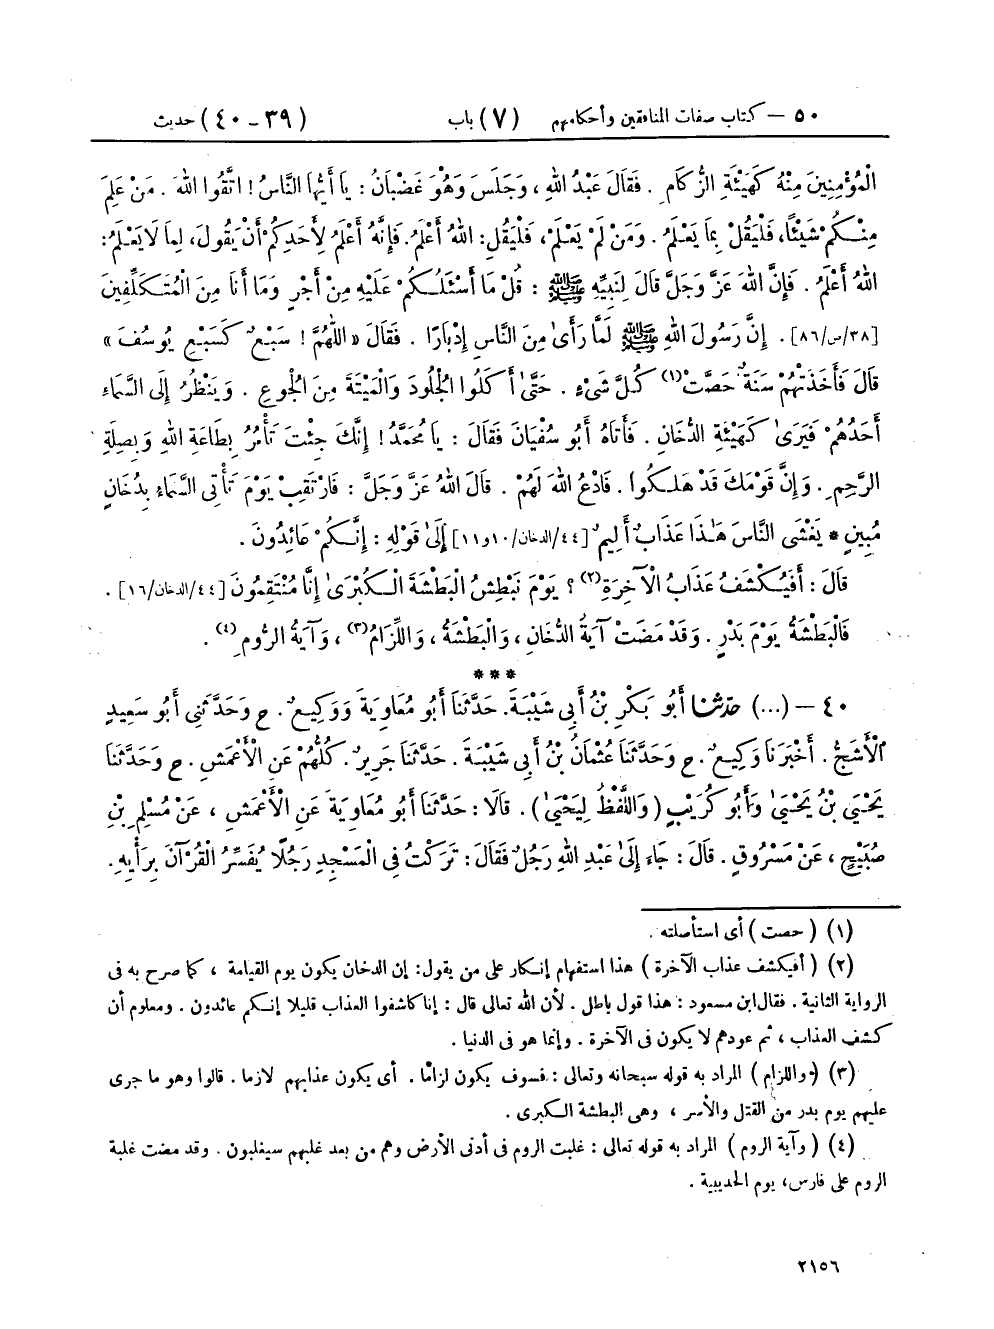 ٥٠ — كتاب صفات المنافقين وأحكامهم (٧) باب (٣٩ - ٤٠) حديث
الْمُؤْمِنِينَ مِنْهُ كَهَيْئَةِ الزُّكَامِ . فَقَالَ عَبْدُ اللهِ ، وَجَلَسَ وَهُوَ غَضْبَانُ : يَا أَيُّهَا النَّاسُ ! اتَّقُوا اللهَ . مَنْ عَلِمَ
مِنْكُمْ شَيْئًا ، فَلْيَقُلْ بِمَا يَعْلَمُ . وَمَنْ لَمْ يَعْلَمْ ، فَلْيَقُلِ : اللهُ أَعْلَمُ . فَإِنَّهُ أَعْلَمُ لِأَحَدِكُمْ أَنْ يَقُولَ ، لِمَا لَا يَعْلَمُ :
اللهُ أَعْلَمُ . فَإِنَّ اللهَ عَزَّ وَجَلَّ قَالَ لِنَبِيِّهِ ﷺ : قُلْ مَا أَسْئَلُكُمْ عَلَيْهِ مِنْ أَجْرٍ وَمَا أَنَا مِنَ الْمُتَكَلِّفِينَ
[٣٨/ص/٨٦] . إِنَّ رَسُولَ اللهِ ﷺ لَمَّا رَأَىٰ مِنَ النَّاسِ إِدْبَارًا . فَقَالَ « اللّٰهُمَّ ! سَبْعٌ كَسَبْعِ يُوسُفَ »
قَالَ فَأَخَذَتْهُمْ سَنَةٌ حَصَّتْ (١) كُلَّ شَيْءٍ . حَتَّىٰ أَكَلُوا الْجُلُودَ وَالْمَيْتَةَ مِنَ الْجُوعِ . وَيَنْظُرُ إِلَى السَّمَاءِ
أَحَدُهُمْ فَيَرَىٰ كَهَيْئَةِ الدُّخَانِ . فَأَتَاهُ أَبُو سُفْيَانَ فَقَالَ : يَا مُحَمَّدُ ! إِنَّكَ جِئْتَ تَأْمُرُ بِطَاعَةِ اللهِ وَبِصِلَةِ
الرَّحِمِ . وَإِنَّ قَوْمَكَ قَدْ هَلَكُوا . فَادْعُ اللهَ لَهُمْ . قَالَ اللهُ عَزَّ وَجَلَّ : فَارْتَقِبْ يَوْمَ تَأْتِي السَّمَاءُ بِدُخَانٍ
مُبِينٍ * يَغْشَى النَّاسَ هَٰذَا عَذَابٌ أَلِيمٌ [٤٤/الدخان/١٠و١١] إِلَىٰ قَوْلِهِ : إِنَّكُمْ عَائِدُونَ .
قَالَ : أَفَيُكْشَفُ عَذَابُ الْآخِرَةِ (٢) ؟ يَوْمَ نَبْطِشُ الْبَطْشَةَ الْكُبْرَىٰ إِنَّا مُنْتَقِمُونَ [٤٤/الدخان/١٦] .
فَالْبَطْشَةُ يَوْمَ بَدْرٍ . وَقَدْ مَضَتْ آيَةُ الدُّخَانِ ، وَالْبَطْشَةُ ، وَاللِّزَامُ (٣) ، وَآيَةُ الرُّومِ (٤) .
***
٤٠ — (...) حَدَّثَنَا أَبُو بَكْرِ بْنُ أَبِي شَيْبَةَ . حَدَّثَنَا أَبُو مُعَاوِيَةَ وَوَكِيعٌ . ح وَحَدَّثَنِي أَبُو سَعِيدٍ
الْأَشَجُّ . أَخْبَرَنَا وَكِيعٌ . ح وَحَدَّثَنَا عُثْمَانُ بْنُ أَبِي شَيْبَةَ . حَدَّثَنَا جَرِيرٌ . كُلُّهُمْ عَنِ الْأَعْمَشِ . ح وَحَدَّثَنَا
يَحْيَىٰ بْنُ يَحْيَىٰ وَأَبُو كُرَيْبٍ ( وَاللَّفْظُ لِيَحْيَىٰ ) . قَالَا : حَدَّثَنَا أَبُو مُعَاوِيَةَ عَنِ الْأَعْمَشِ ، عَنْ مُسْلِمِ بْنِ
صُبَيْحٍ ، عَنْ مَسْرُوقٍ . قَالَ : جَاءَ إِلَىٰ عَبْدِ اللهِ رَجُلٌ فَقَالَ : تَرَكْتُ فِي الْمَسْجِدِ رَجُلًا يُفَسِّرُ الْقُرْآنَ بِرَأْيِهِ .
(١) ( حصت ) أي استأصلته .
(٢) ( أفيكشف عذاب الآخرة ) هذا استفهام إنكار على من يقول : إن الدخان يكون يوم القيامة ، كما صرح به في
الرواية الثانية . فقال ابن مسعود : هذا قول باطل . لأن الله تعالى قال : إنا كاشفوا العذاب قليلا إنكم عائدون . ومعلوم أن
كشف العذاب ، ثم عودهم لا يكون في الآخرة . وإنما هو في الدنيا .
(٣) ( واللزام ) المراد به قوله سبحانه وتعالى : فسوف يكون لزاما . أي يكون عذابهم لازما . قالوا وهو ما جرى
عليهم يوم بدر من القتل والأسر ، وهي البطشة الكبرى .
(٤) ( وآية الروم ) المراد به قوله تعالى : غلبت الروم في أدنى الأرض وهم من بعد غلبهم سيغلبون . وقد مضت غلبة
الروم على فارس، يوم الحديبية .
٢١٥٦